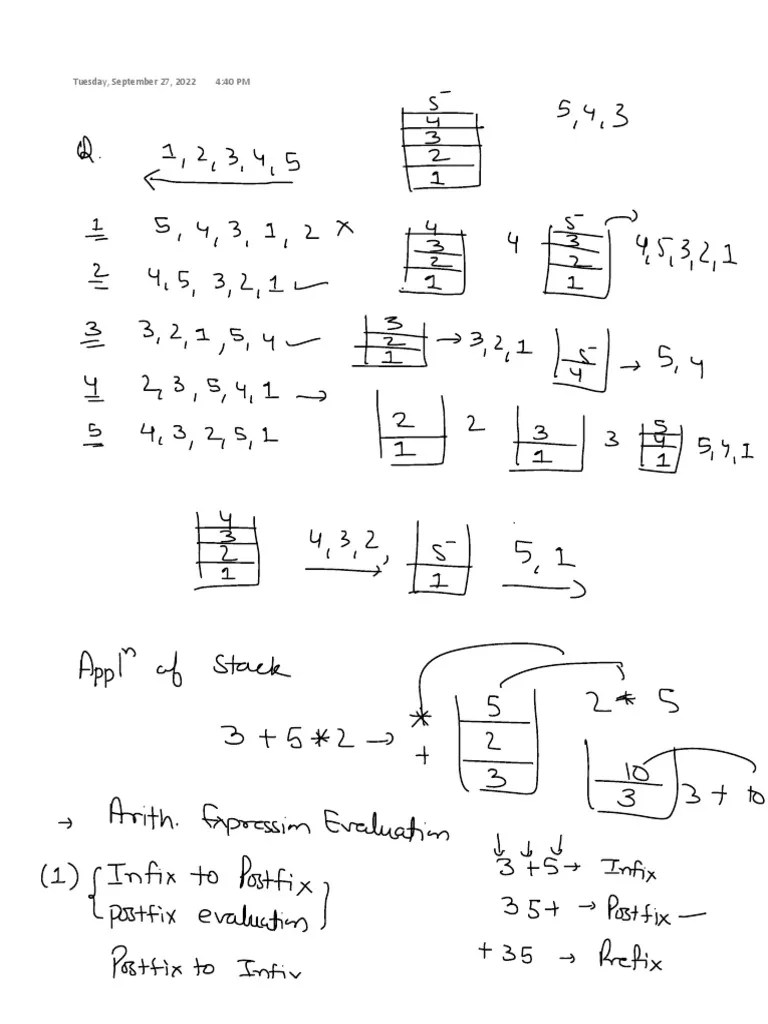 Tuesday, September 27, 2022 4:40 PM
5
4
3
2
1
5, 4, 3
Q. 1, 2, 3, 4, 5
1 5, 4, 3, 1, 2 ×
4
3
2
1
4
5
3
2
1
4, 5, 3, 2, 1
2 4, 5, 3, 2, 1 ✓
3 3, 2, 1, 5, 4 ✓
3
2
1
→ 3, 2, 1
5
4
→ 5, 4
4 2, 3, 5, 4, 1 →
2
1
2
3
1
3
5
4
1
5, 4, 1
5 4, 3, 2, 5, 1
4
3
2
1
4, 3, 2,
5
1
5, 1
Appln of Stack
3 + 5 * 2 →
*
+
5
2
3
2 * 5
10
3
3 + 10
→ Arith. Expression Evaluation
(1) { Infix to Postfix
postfix evaluation }
Postfix to Infix
3 + 5 → Infix
3 5 + → Postfix —
+ 3 5 → Prefix